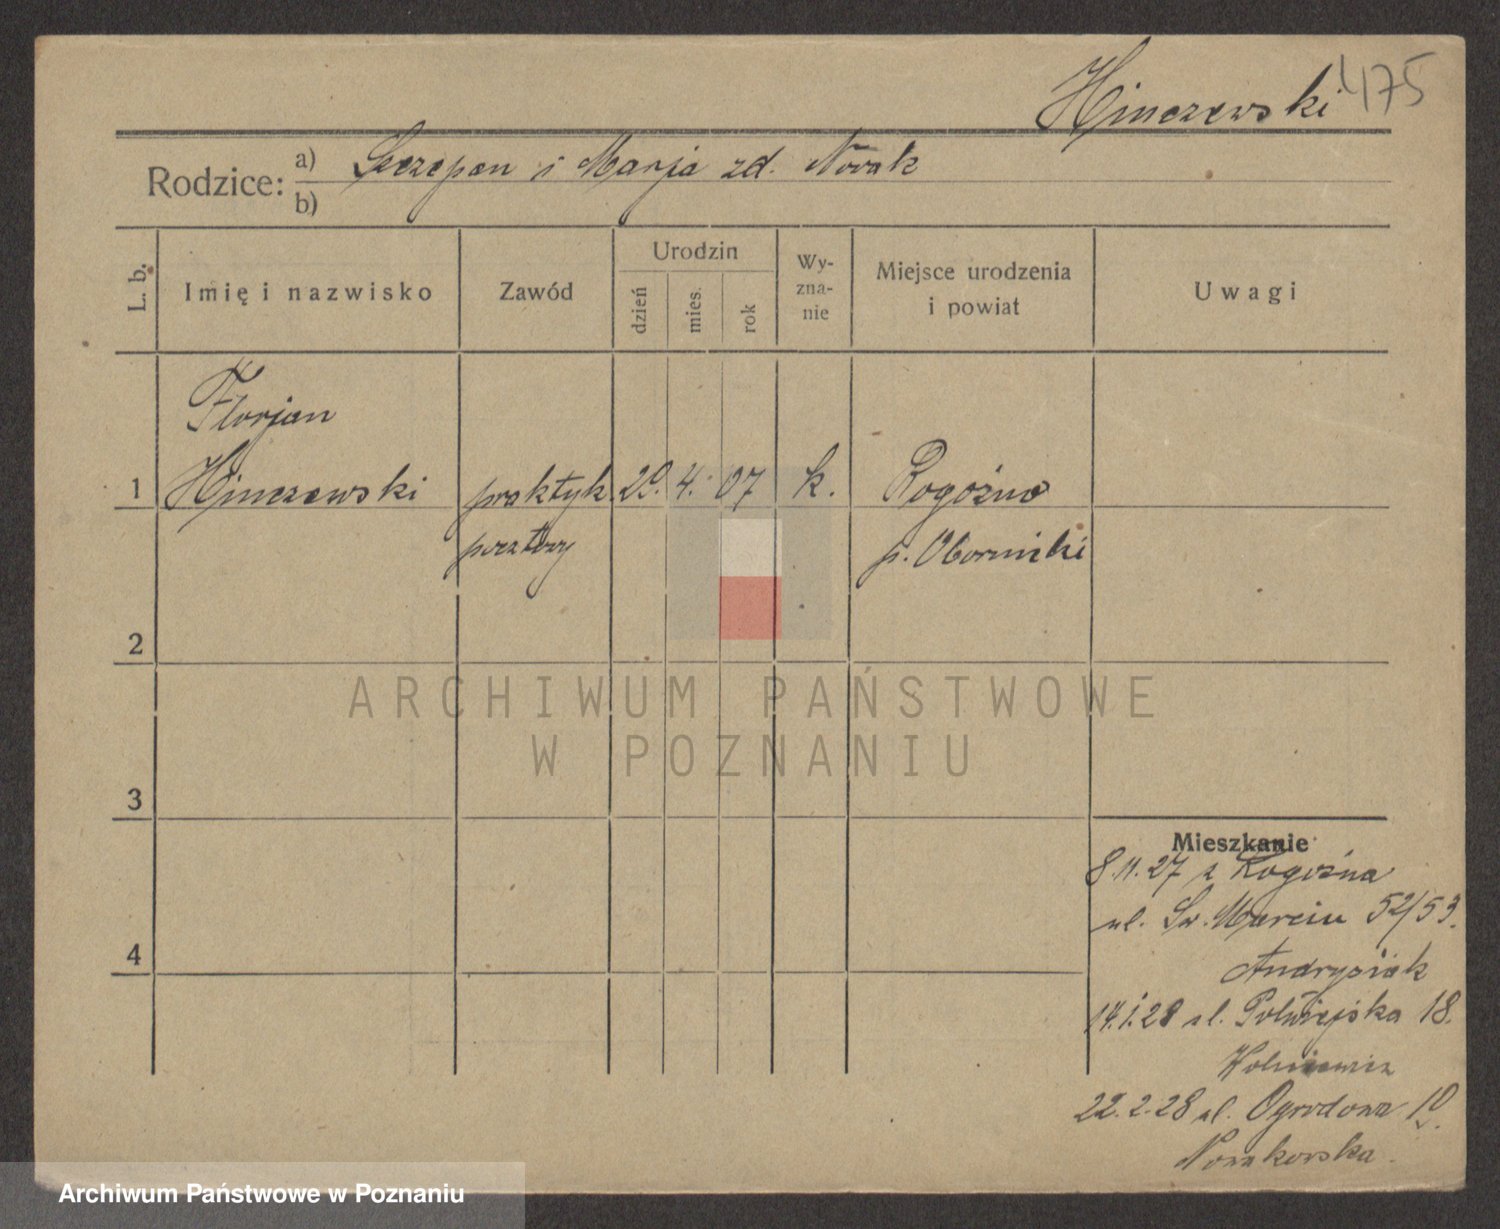 Hinczewski 475
Rodzice: a) Szczepan i Marja zd. Nowak
b)
L. b.
Imię i nazwisko
Zawód
Urodzin
dzień
mies.
rok
Wy-
zna-
nie
Miejsce urodzenia
i powiat
Uwagi
Florjan
1 Hinczewski praktyk. 29. 4. 07 k. Rogoźno
pocztowy p. Oborniki
2
3
4
ARCHIWUM PAŃSTWOWE
W POZNANIU
Mieszkanie
8.11.27 z Rogoźna
ul. Św. Marcin 52/53.
Andrysiak
14.1.28 ul. Półwiejska 18.
22.2.28 ul. Ogrodowa 10.
Nowakowska.
Archiwum Państwowe w Poznaniu